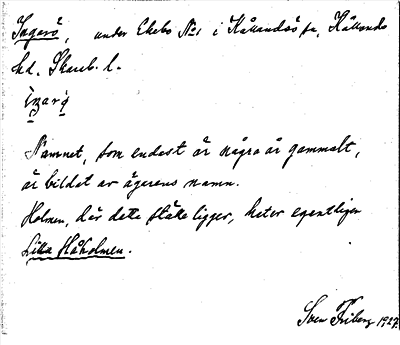 Ingarö, under Ekebo No 1 i Kållandsö sn, Kållands
hd. Skarab. l.
ìŋarö̀
Namnet, som endast är några år gammalt,
är bildat av ägarens namn.
Holmen, där detta ställe ligger, heter egentligen
Lilla Håholmen.
Sven Friberg 1927.